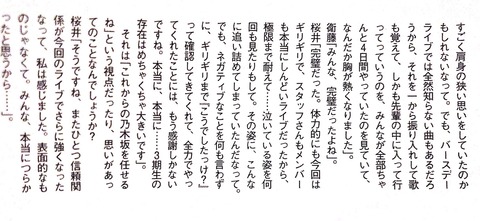 すごく肩身の狭い思いをしていたのか
もしれないなって。でも、バースデー
ライブでは全然知らない曲もあるだろ
うから、それを一から振り入れして歌
も覚えて、しかも先輩の中に入って行
ってっていうのを、みんなが全部ちゃ
んと4日間やっていたのを見ていて、
なんだか胸が熱くなりました」。
衛藤「みんな、完璧だったよね」。
桜井「完璧だった。体力的にも今回は
ギリギリで、スタッフさんもメンバー
も本当にしんどいライブだったから、
極限まで耐えて……泣いている姿を何
回も見たりもして。その姿に、こんな
に追い詰めてしまっていたんだなって。
でも、ネガティブなことを何も言わず
に、ギリギリまで『こうでしたっけ?』
って確認してきてくれて、全力でやっ
てくれたことには、もう感謝しかない
ですね。本当に、本当に……3期生の
存在はめちゃくちゃ大きいです」。
それは『これからの乃木坂を任せる
ね』という視点だったり、思いがあっ
てのことなんでしょうか?
桜井「そうですね、またひとつ信頼関
係が今回のライブでさらに強くなった
なって、私は感じました。表面的なも
のじゃなくて。みんな、本当につらか
ったと思うから……」。